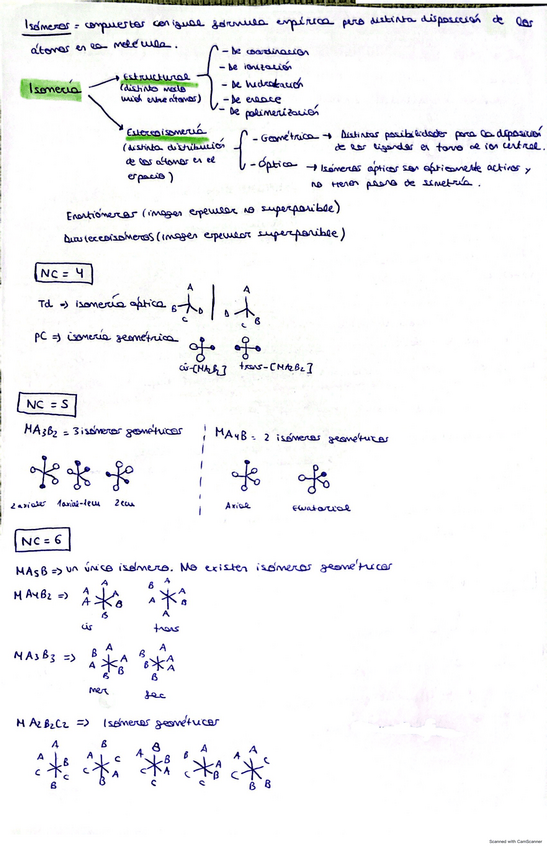 Isómeros = compuestos con igual fórmula empírica pero distinta disposición de los
átomos en la molécula.
Isomería
Estructural
(distinto modo
unión entre átomos)
- De coordinación
- De ionización
- De hidratación
- De enlace
- De polimerización
Estereoisomería
(distinta distribución
de los átomos en el
espacio)
- Geométrica → Distintas posibilidades para la disposición
de los ligandos en torno de ion central.
- Óptica → Isómeros ópticos son ópticamente activos y
no tienen plano de simetría.
Enantiómeros (imagen especular no superponible)
Diastereoisómeros (imagen especular superponible)
NC = 4
Td => isomería óptica
A
B D
C
A
D B
C
PC => isomería geométrica
cis-[MA2B2] trans-[MA2B2]
NC = 5
MA3B2 = 3 isómeros geométricos
MA4B = 2 isómeros geométricos
2 axiales 1axial-1ecu 2ecu
Axial Ecuatorial
NC = 6
MA5B => un único isómero. No existen isómeros geométricos
MA4B2 =>
A A A B B
cis
B A A A
trans
MA3B3 =>
B A A A B B
mer
B A A A B B
fac
MA2B2C2 => Isómeros geométricos
A A B C C B
B A C C A B
B A B C A C
A B A C B C
A A C C B B
Scanned with CamScanner